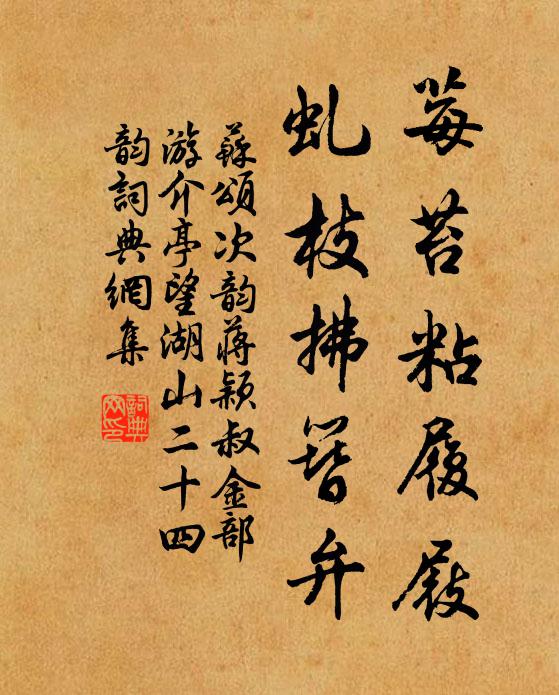 莓苔粘履屐
虬枝拂簪弁
蘇頌次韵蔣颖叔金部
游介亭望湖山二十四
韵詞典網集
詞典
网印